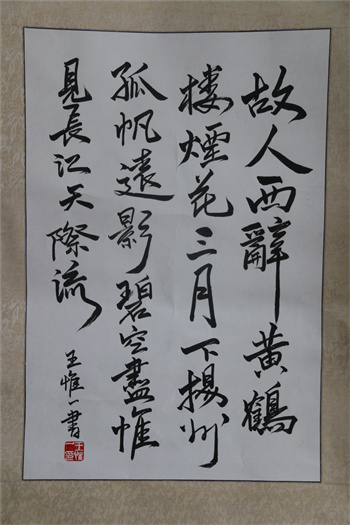 故人西辭黄鶴
楼煙花三月下揚州
孤帆遠影碧空盡惟
見長江天際流
王惟一書